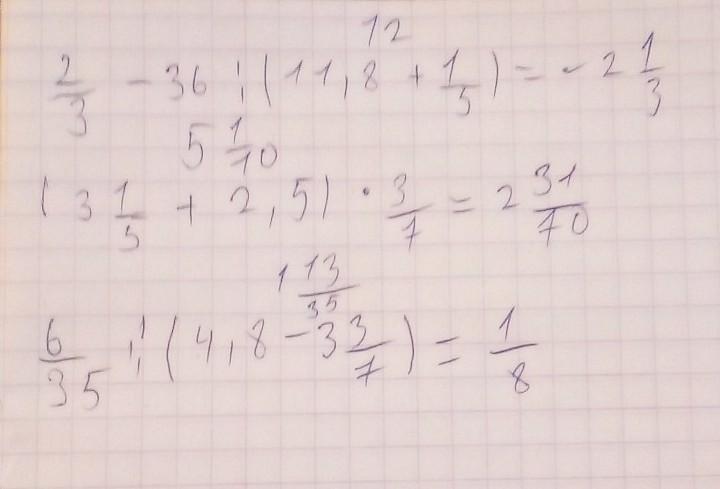 12
2/3 - 36 : (11,8 + 1/5) = - 2 1/3
5 7/10
(3 1/5 + 2,5) · 3/7 = 2 31/70
1 13/35
6/35 : (4,8 - 3 3/7) = 1/8